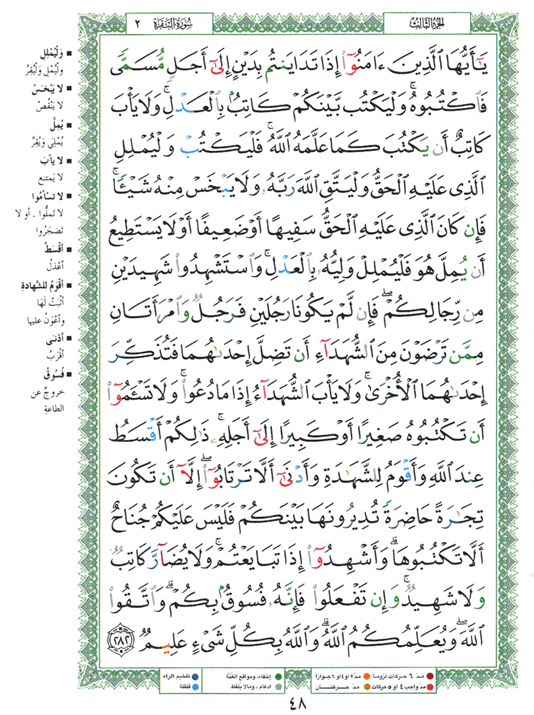 الجزء الثالث
سورة البقرة ٢
يَٰٓأَيُّهَا ٱلَّذِينَ ءَامَنُوٓا۟ إِذَا تَدَايَنتُم بِدَيْنٍ إِلَىٰٓ أَجَلٍ مُّسَمًّى
فَٱكْتُبُوهُ ۚ وَلْيَكْتُب بَّيْنَكُمْ كَاتِبٌۢ بِٱلْعَدْلِ ۚ وَلَا يَأْبَ
كَاتِبٌ أَن يَكْتُبَ كَمَا عَلَّمَهُ ٱللَّهُ ۚ فَلْيَكْتُبْ وَلْيُمْلِلِ
ٱلَّذِى عَلَيْهِ ٱلْحَقُّ وَلْيَتَّقِ ٱللَّهَ رَبَّهُۥ وَلَا يَبْخَسْ مِنْهُ شَيْـًٔا ۚ
فَإِن كَانَ ٱلَّذِى عَلَيْهِ ٱلْحَقُّ سَفِيهًا أَوْ ضَعِيفًا أَوْ لَا يَسْتَطِيعُ
أَن يُمِلَّ هُوَ فَلْيُمْلِلْ وَلِيُّهُۥ بِٱلْعَدْلِ ۚ وَٱسْتَشْهِدُوا۟ شَهِيدَيْنِ
مِن رِّجَالِكُمْ ۖ فَإِن لَّمْ يَكُونَا رَجُلَيْنِ فَرَجُلٌ وَٱمْرَأَتَانِ
مِمَّن تَرْضَوْنَ مِنَ ٱلشُّهَدَآءِ أَن تَضِلَّ إِحْدَىٰهُمَا فَتُذَكِّرَ
إِحْدَىٰهُمَا ٱلْأُخْرَىٰ ۚ وَلَا يَأْبَ ٱلشُّهَدَآءُ إِذَا مَا دُعُوا۟ ۚ وَلَا تَسْـَٔمُوٓا۟
أَن تَكْتُبُوهُ صَغِيرًا أَوْ كَبِيرًا إِلَىٰٓ أَجَلِهِۦ ۚ ذَٰلِكُمْ أَقْسَطُ
عِندَ ٱللَّهِ وَأَقْوَمُ لِلشَّهَٰدَةِ وَأَدْنَىٰٓ أَلَّا تَرْتَابُوٓا۟ ۖ إِلَّآ أَن تَكُونَ
تِجَٰرَةً حَاضِرَةً تُدِيرُونَهَا بَيْنَكُمْ فَلَيْسَ عَلَيْكُمْ جُنَاحٌ
أَلَّا تَكْتُبُوهَا ۗ وَأَشْهِدُوٓا۟ إِذَا تَبَايَعْتُمْ ۚ وَلَا يُضَآرَّ كَاتِبٌ
وَلَا شَهِيدٌ ۚ وَإِن تَفْعَلُوا۟ فَإِنَّهُۥ فُسُوقٌۢ بِكُمْ ۗ وَٱتَّقُوا۟
ٱللَّهَ ۖ وَيُعَلِّمُكُمُ ٱللَّهُ ۗ وَٱللَّهُ بِكُلِّ شَىْءٍ عَلِيمٌ ٢٨٢
■ وَلْيُمْلِلِ
وَلْيُمْلِ وَلْيُقِرَّ
■ لا يَبْخَسْ
لا يَنْقُصْ
■ يُمِلَّ
يُمْلِيَ ويُقِرَّ
■ لا يأبَ
لا يمتنع
■ لا تسأموا
لا تملّوا . أو لا
تضجروا
■ أقْسَطُ
أعْدَلُ
■ أقْوَمُ للشَّهادةِ
أثْبَتُ لَهَا
وأعْوَنُ عليها
■ أدْنى
أقْرَبُ
■ فُسُوقٌ
خروجٌ عن
الطاعةِ
مدّ ٦ حركات لزوماً مدّ ٢ أو ٤ أو ٦ جوازاً
مدّ واجب ٤ أو ٥ حركات مدّ حركتان
إخفاء، ومواقع الغنّة
ادغام، وما لا يُلفظ
تفخيم الراء
قلقلة
٤٨